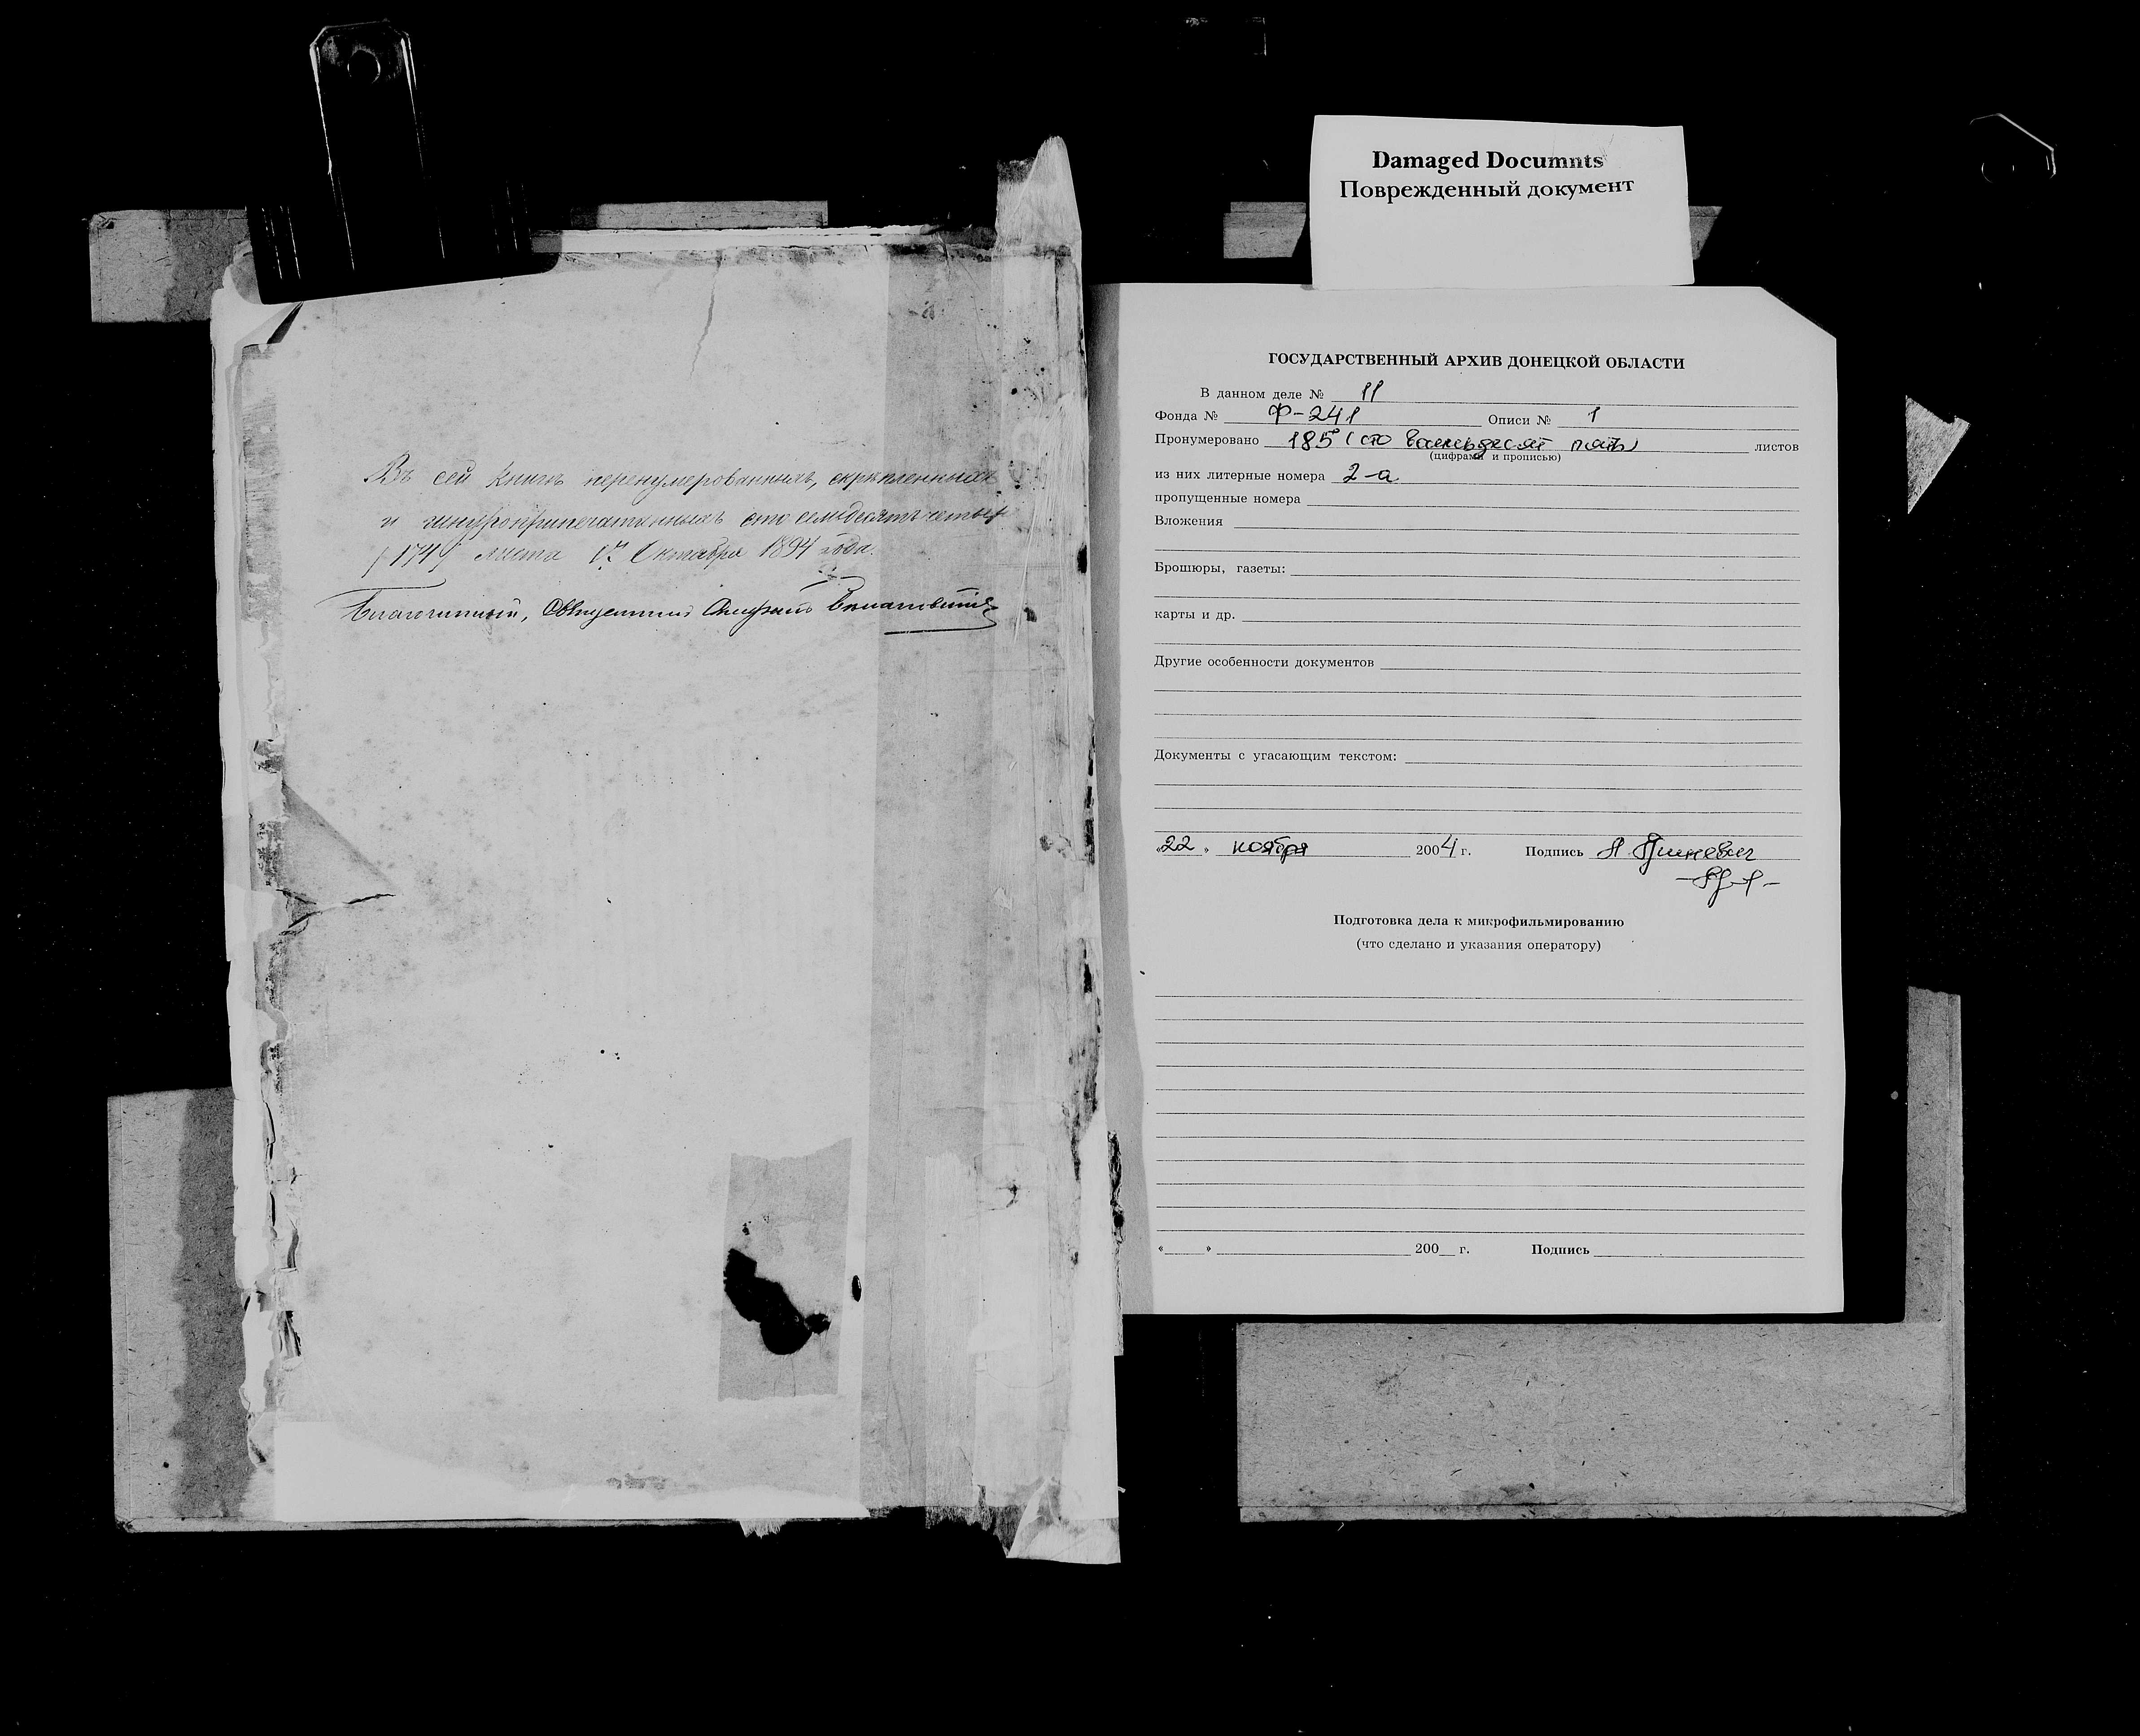 Въ сей книгѣ перенумерованныхъ, скрѣпленныхъ
и шнуроприпечатанныхъ сто семьдесятъ четыре
(174) листа 1го Октября 1894 года.
Благочинный, Священникъ
Damaged Documnts
Поврежденный документ
ГОСУДАРСТВЕННЫЙ АРХИВ ДОНЕЦКОЙ ОБЛАСТИ
В данном деле № 11
Фонда № Ф-241 Описи № 1
Пронумеровано 185 (сто восемьдесят пять) листов
(цифрами и прописью)
из них литерные номера 2-а
пропущенные номера
Вложения
Брошюры, газеты:
карты и др.
Другие особенности документов
Документы с угасающим текстом:
«22» ноября 2004 г. Подпись
Подготовка дела к микрофильмированию
(что сделано и указания оператору)
« » 200 г. Подпись